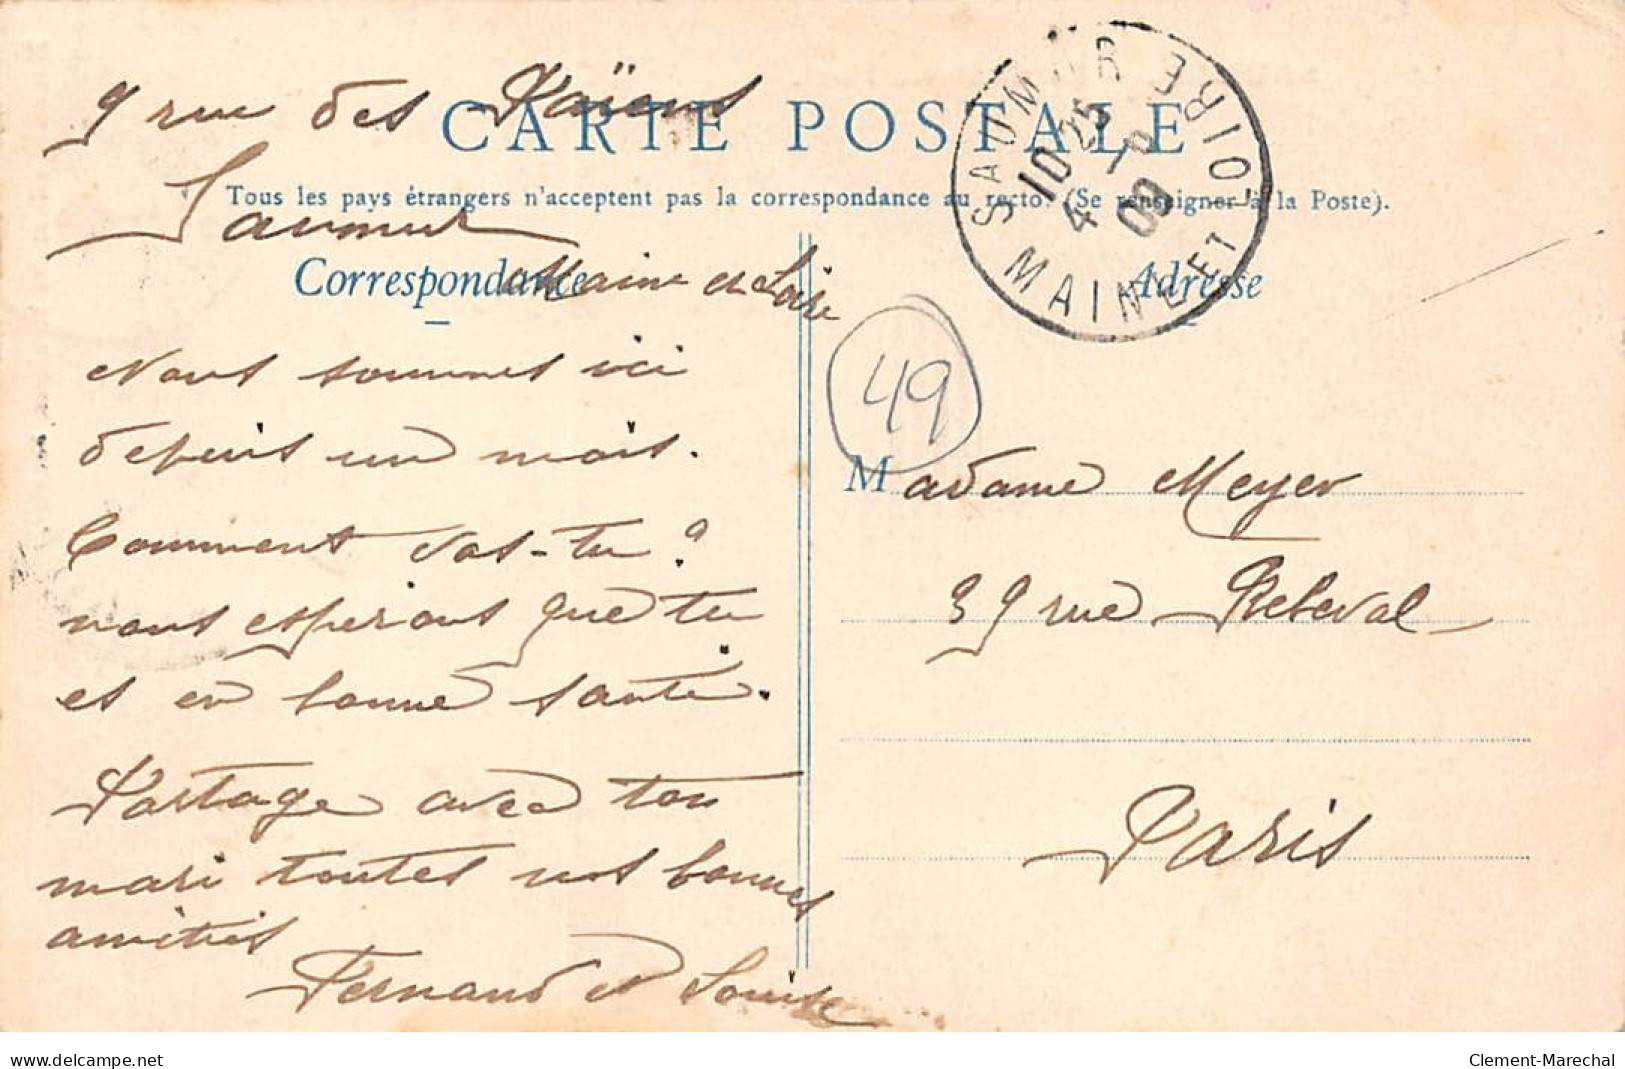 9 rue des Païens
CARTE POSTALE
Saumur
Tous les pays étrangers n'acceptent pas la correspondance au recto. (Se renseigner à la Poste).
Maine et Loire
Correspondance
Nous sommes ici
depuis un mois.
Comment vas-tu ?
nous espérons que tu
es en bonne santé.
Partage avec ton
mari toutes nos bonnes
amitiés
Fernand et Louise
SAUMUR
10 25
4 -
09
MAINE ET LOIRE
Adresse
49
Madame Meyer
39 rue Rebeval
Paris
www.delcampe.net
Clement-Marechal